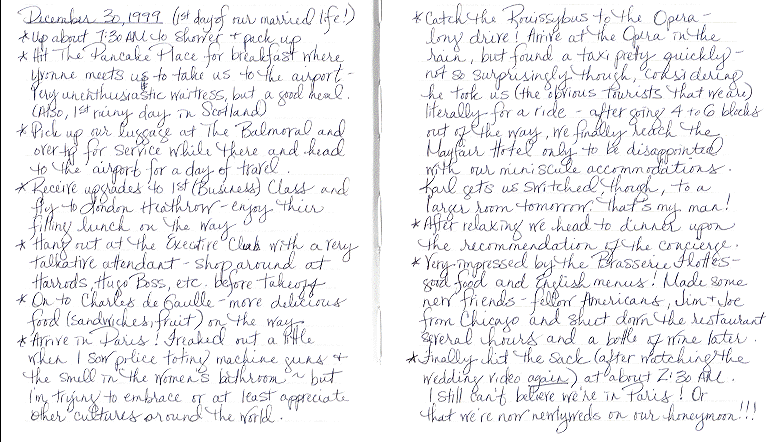 December 30, 1999 (1st day of our married life!)
* Up about 7:30 AM to shower & pack up
* Hit The Pancake Place for breakfast where
Yvonne meets us to take us to the airport -
Very unenthusiastic waitress, but a good meal.
(Also, 1st rainy day in Scotland)
* Pick up our luggage at The Balmoral and
over tip for service while there and head
to the airport for a day of travel.
* Receive upgrades to 1st (Business) Class and
fly to London Heathrow - enjoy their
filling lunch on the way
* Hang out at the Executive Club with a very
talkative attendant - shop around at
Harrods, Hugo Boss, etc. before takeoff
* On to Charles de Gaulle - more delicious
food (sandwiches, fruit) on the way
* Arrive in Paris! Freaked out a little
when I saw police toting machine guns &
the smell in the women's bathroom ~ but
I'm trying to embrace or at least appreciate
other cultures around the world.
* Catch the Rouissybus to the Opera -
long drive! Arrive at the Opera in the
rain, but found a taxi prety quickly -
not so surprisingly though, considering
he took us (the obvious tourists that we are)
literally for a ride - after going 4 to 6 blocks
out of the way, we finally reach the
Mayfair Hotel only to be disappointed
with our miniscule accommodations.
Karl gets us switched though, to a
larger room tomorrow. That's my man!
* After relaxing we head to dinner upon
the recommendation of the concierge.
* Very impressed by the Brasserie Flottes -
good food and English menus! Made some
new friends - fellow Americans, Jim & Joe
from Chicago and shut down the restaurant
several hours and a bottle of wine later.
* Finally hit the sack (after watching the
wedding video again) at about 2:30 AM.
I still can't believe we're in Paris! Or
that we're now newlyweds on our honeymoon!!!